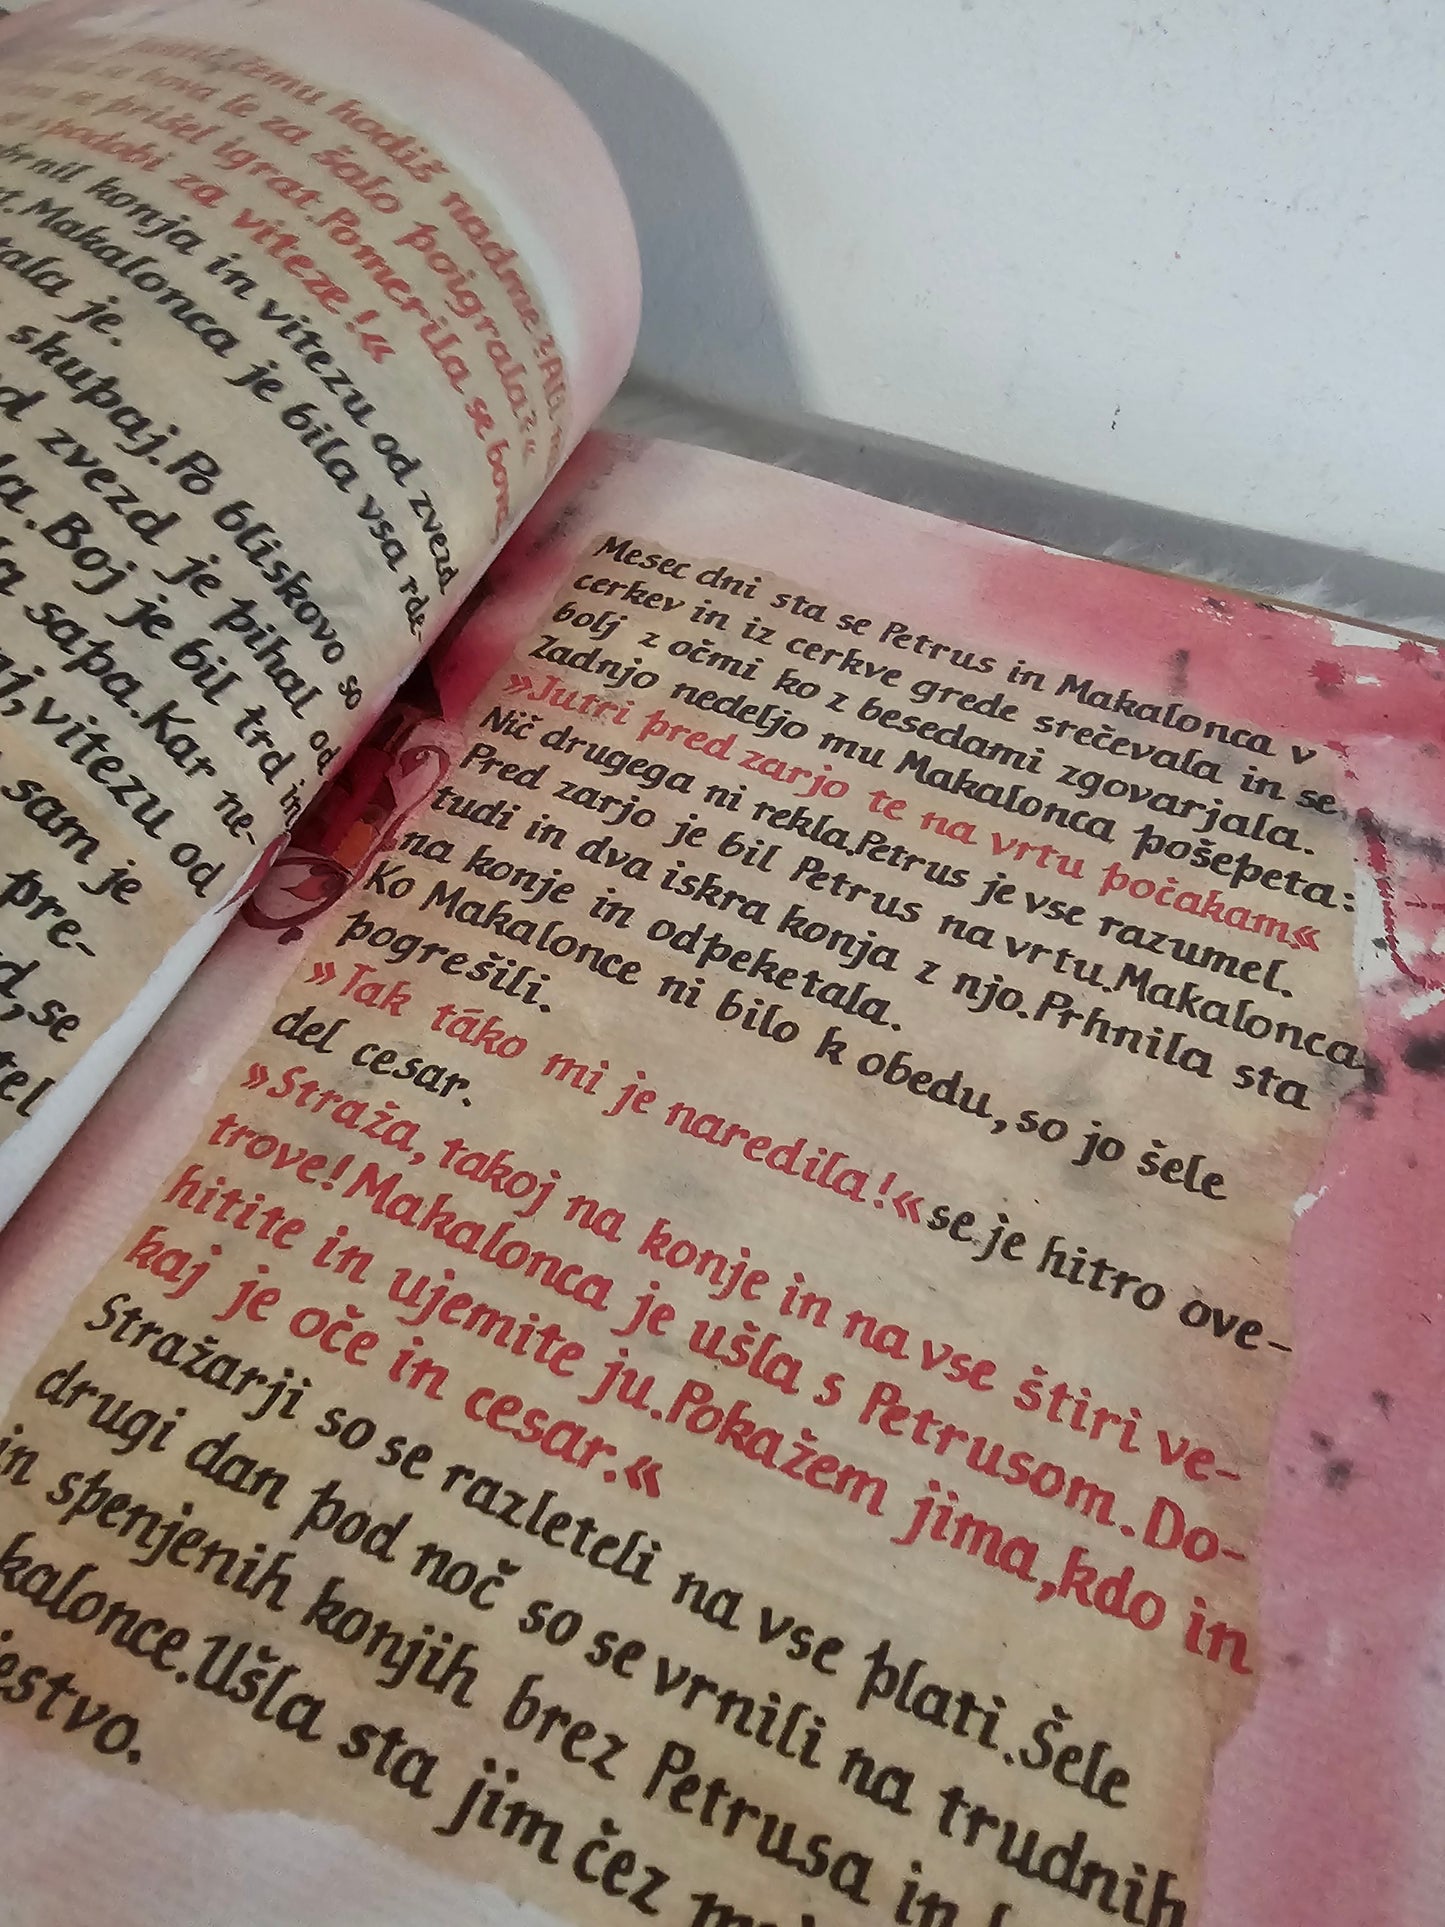 čemu hodiš nadme? Ali
bova le za šalo poigrala?«
prišel igrat. Pomerila se bova,
spodobi za viteze!«
konja in vitezu od zvezd
Makalonca je bila vsa rde-
je.
skupaj. Po bliskovo so
zvezd je pihal od
Boj je bil trd in
sapa. Kar ne-
vitezu od
sam je
pre-
se
Mesec dni sta se Petrus in Makalonca v
cerkev in iz cerkve grede srečevala in se
bolj z očmi ko z besedami zgovarjala.
Zadnjo nedeljo mu Makalonca pošepeta:
»Jutri pred zarjo te na vrtu počakam«
Nič drugega ni rekla. Petrus je vse razumel.
Pred zarjo je bil Petrus na vrtu. Makalonca
tudi in dva iskra konja z njo. Prhnila sta
na konje in odpeketala.
Ko Makalonce ni bilo k obedu, so jo šele
pogrešili.
»Tak táko mi je naredila!« se je hitro ove-
del cesar.
»Straža, takoj na konje in na vse štiri ve-
trove! Makalonca je ušla s Petrusom. Do-
hitite in ujemite ju. Pokažem jima, kdo in
kaj je oče in cesar.«
Stražarji so se razleteli na vse plati. Šele
drugi dan pod noč so se vrnili na trudnih
in spenjenih konjih brez Petrusa in
kalonce. Ušla sta jim čez